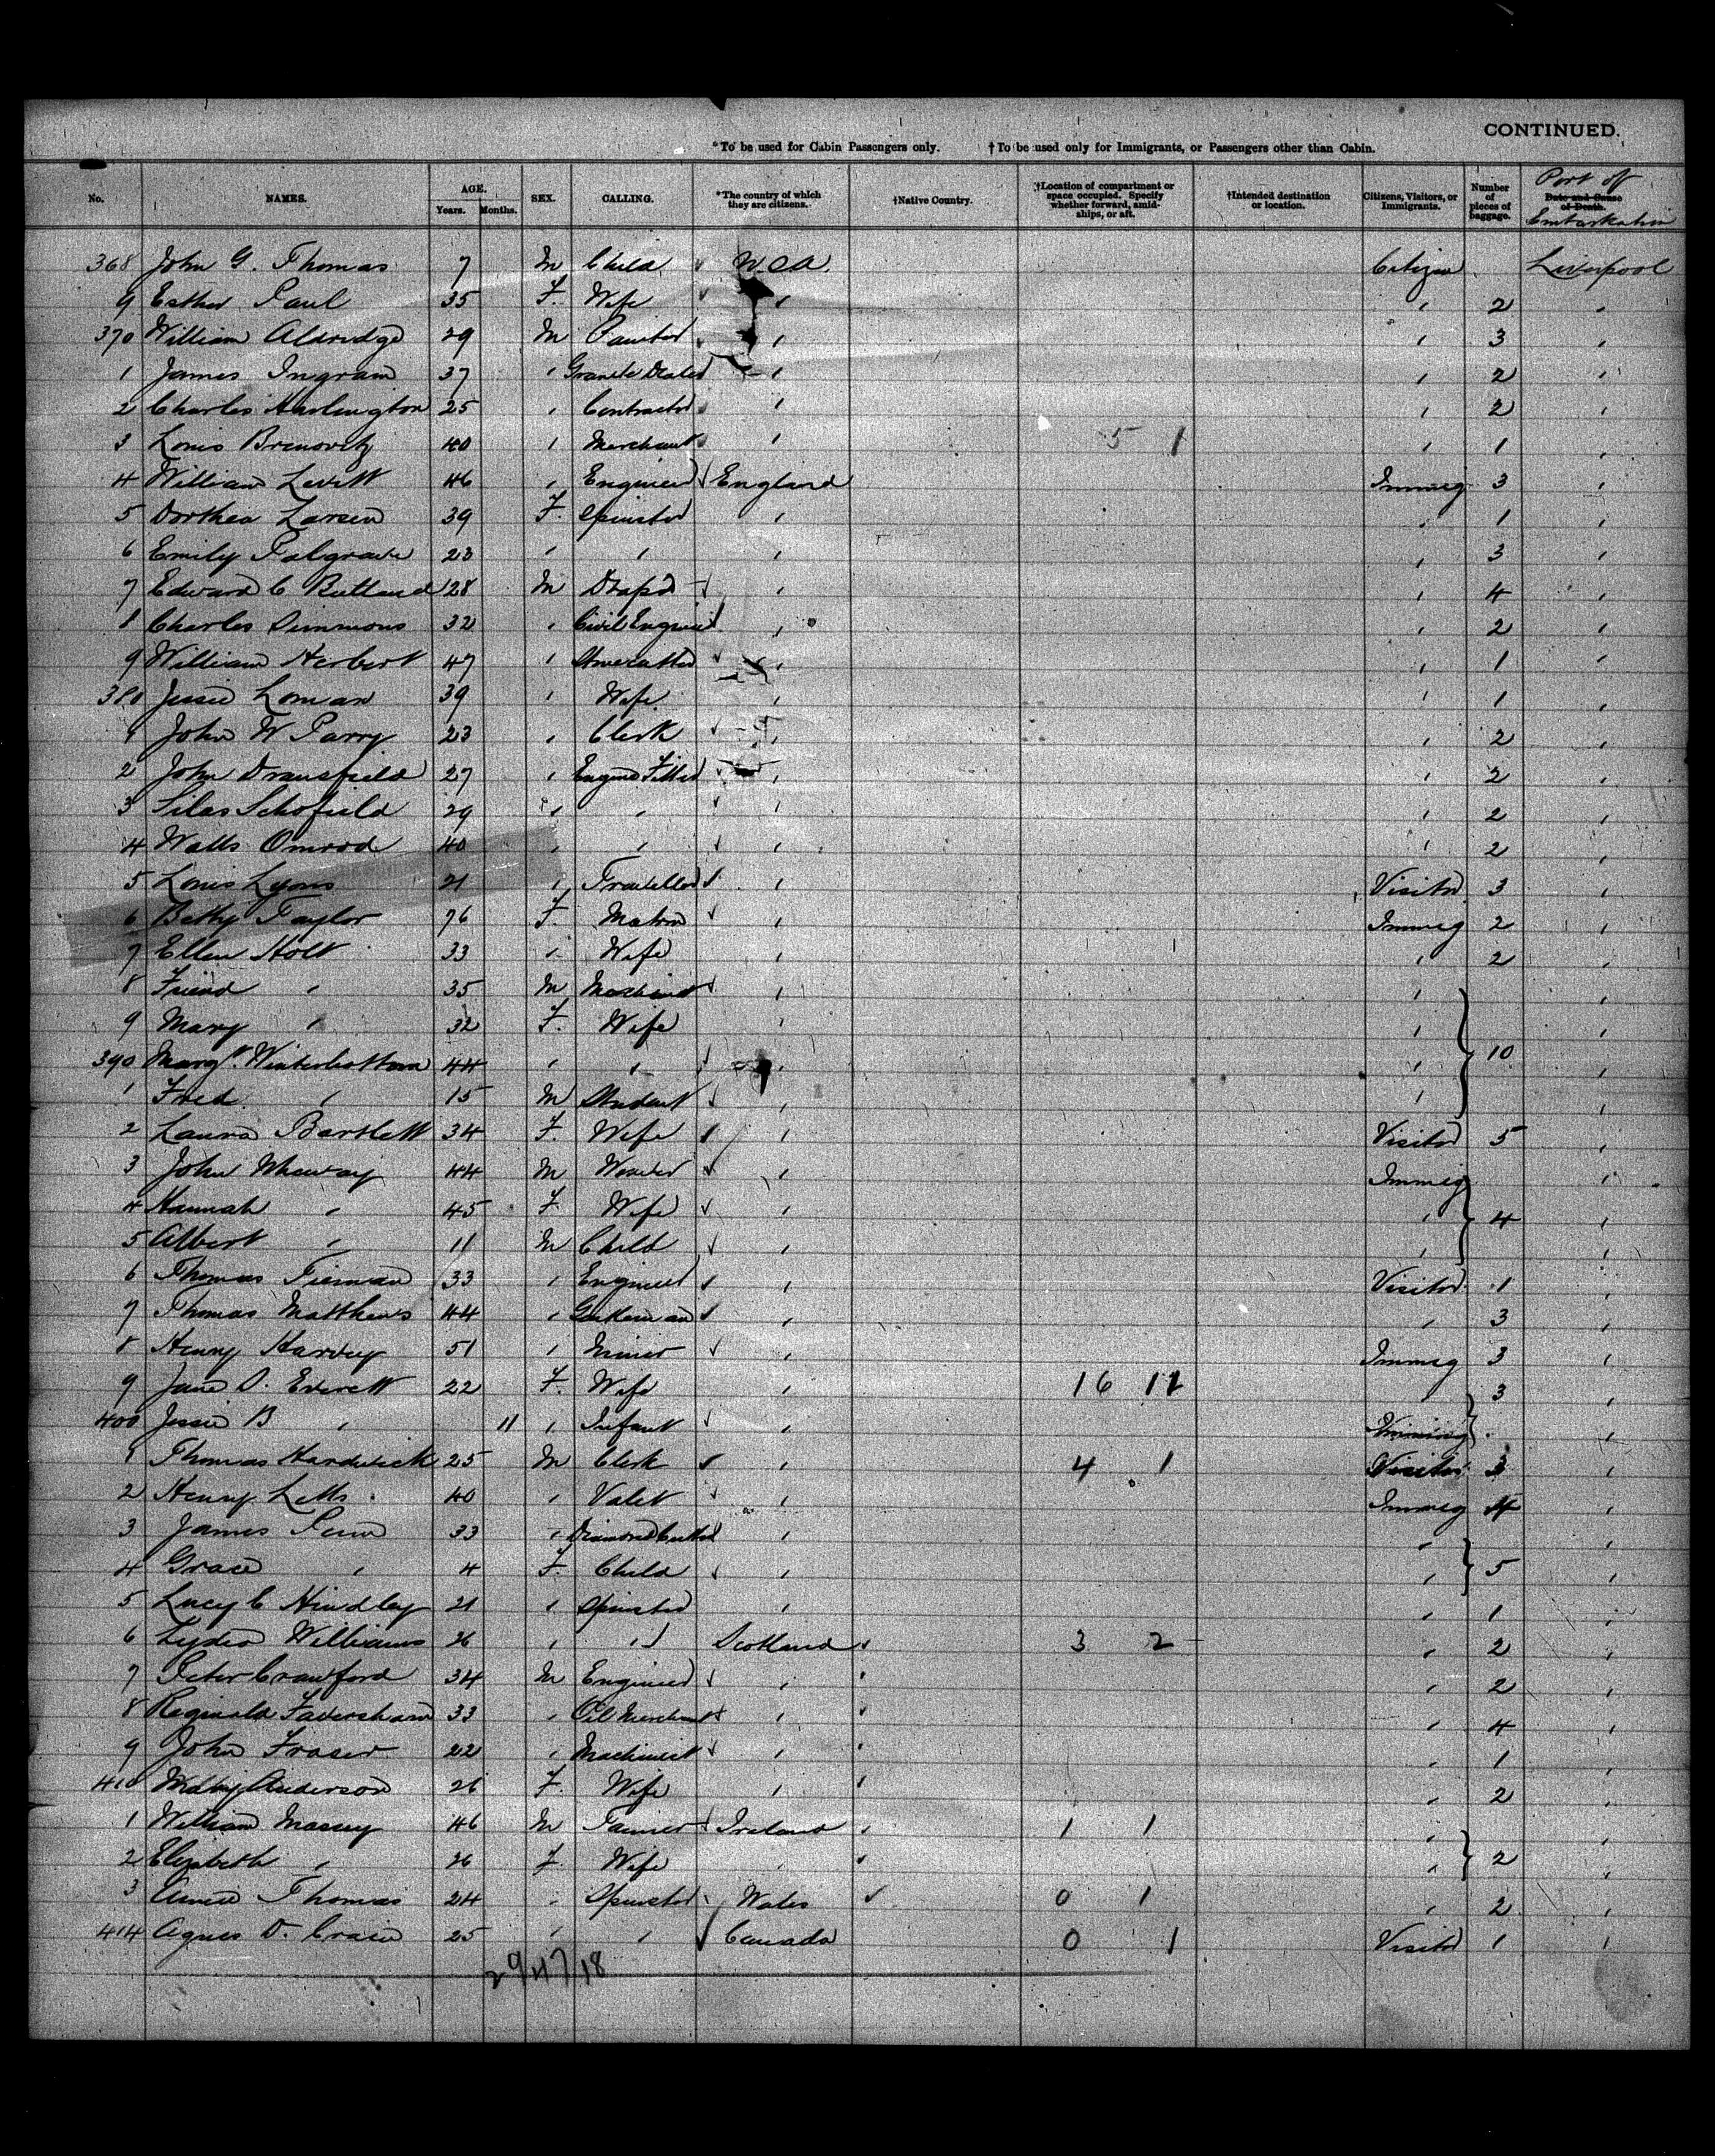 CONTINUED.
*To be used for Cabin Passengers only. †To be used only for Immigrants, or Passengers other than Cabin.
No. NAMES. AGE. Years. Months. SEX. CALLING. *The country of which they are citizens. †Native Country. †Location of compartment or space occupied. Specify whether forward, amidships, or aft. †Intended destination or location. Citizens, Visitors, or Immigrants. Number of pieces of baggage. Date and Cause of Death. Port of Embarkation
368 John G. Thomas 7 M Child Citizen Liverpool
9 Esther Paul 35 F. Wife " " 2 "
370 William Aldridge 29 M Painter " " 3 "
1 James Ingram 37 " Granite Dealer " " 2 "
2 Charles Harlington 25 " Contractor " " 2 "
3 Louis 40 " Merchant " 5 1 " 1 "
4 William Levett 46 " Engineer England Immig 3 "
5 Dorthea Larsen 39 F. Spinster " " 1 "
6 Emily Palgrave 23 " " " " 3 "
7 Edward C Rutland 28 M Draper " " 4 "
8 Charles Simmons 32 " Civil Engineer " " 2 "
9 William Herbert 47 " Stonecutter " " 1 "
380 Jessie Lomax 39 " Wife " " 1 "
1 John W Parry 23 " Clerk " " 2 "
2 John Dransfield 27 " Engine Fitter " " 2 "
3 Silas Schofield 29 " " " " 2 "
4 Watts Omrod 40 " " " " 2 "
5 Louis Lyons 21 " Traveller " Visitor 3 "
6 Betty Taylor 76 F. Matron " Immig 2 "
7 Ellen Holt 33 " Wife " " 2 "
8 Friend " 35 M Machinist " " "
9 Mary " 32 F. Wife " " "
390 Margt. Winterbottom 44 " " " " 10 "
1 Fred " 15 M Student " " "
2 Laura Bartlett 34 F. Wife " Visitor 5 "
3 John Wheway 44 M " Immig "
4 Hannah " 45 F. Wife " " 4 "
5 Albert " 11 M Child " " "
6 Thomas Tiernan 33 " Engineer " Visitor 1 "
7 Thomas Matthews 44 " Gentleman " " 3 "
8 Henry Harvey 51 " Miner " Immig 3 "
9 Jane D. Everett 22 F. Wife " 16 11 " 3 "
400 Jessie B " 11 " Infant " Immig "
1 Thomas Hardwick 25 M Clerk " 4 1 Visitor 3 "
2 Henry Letts 40 " Valet " Immig 4 "
3 James Penn 33 " Diamond Cutter " " "
4 Grace " 4 F. Child " " 5 "
5 Lucy C Hindley 21 " Spinster " " 1 "
6 Lydia Williams 26 " " Scotland 3 2 " 2 "
7 Peter Crawford 34 M Engineer " " 2 "
8 Reginald Faversham 33 " Oil Merchant " " 4 "
9 John Fraser 22 " Machinist " " 1 "
410 Anderson 26 F. Wife " " 2 "
1 William Massey 46 M Farmer Ireland 1 1 " "
2 Elizabeth " 26 F. Wife " " 2 "
3 Annie Thomas 24 " Spinster Wales 0 1 " 2 "
414 Agnes D. Craig 25 " " Canada 0 1 Visitor 1 "